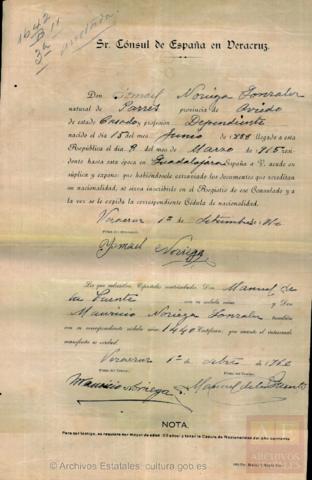 1642
Sr. Cónsul de España en Veracruz.
Don Ismael Noriega Gonzalez
natural de Parres provincia de Oviedo
de estado Casado y profesión Dependiente
nacido el día 15 del mes Junio de 1888 llegado a esta
República el día 9 del mes de Marzo de 1905 resi-
dendo hasta esta época en Guadalajara España a V. acude en
súplica y expone: que habiéndosele extraviado los documentos que acreditan
su nacionalidad, se sirva inscribirlo en el Registro de ese Consulado y a
la vez se le expida la correspondiente Cédula de nacionalidad.
Veracruz 1º de
Ismael Noriega
Los que subscriben, Españoles matriculados: Don Manuel de
la Fuente con su cédula núm. y Don
Mauricio Noriega Gonzalez también
con su correspondiente cédula núm. 1440 Certifican: que cuanto el interesado
manifiesta es verdad.
Veracruz 1º de
Mauricio Noriega Manuel de la Fuente
NOTA.
Para ser testigo, se requiere ser mayor de edad y tener la Cédula de Nacionalidad del año corriente
AE
ARCHIVOS
© Archivos Estatales, cultura.gob.es